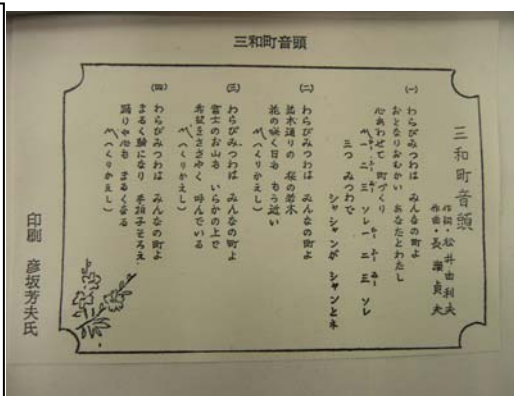 三和町音頭
三和町音頭
作詞・松井由利夫
作曲・長瀬貞夫
(一)
わらびみつわは みんなの町よ
おとなりおむかい あなたとわたし
心あわせて 町づくり
一 二 三 ソレ 一 二 三 ソレ
三つ みつわで
シャシャンが シャンとネ
(二)
わらびみつわは みんなの町よ
並木通りの 桜の若木
花の咲く日も もう近い
(くりかえし)
(三)
わらびみつわは みんなの町よ
富士のお山も いらかの上で
希望をささやく 呼んでいる
(くりかえし)
(四)
わらびみつわは みんなの町よ
まるく輪になり 手拍子そろえ
踊りや心も まるくなる
(くりかえし)
印刷 彦坂芳夫氏